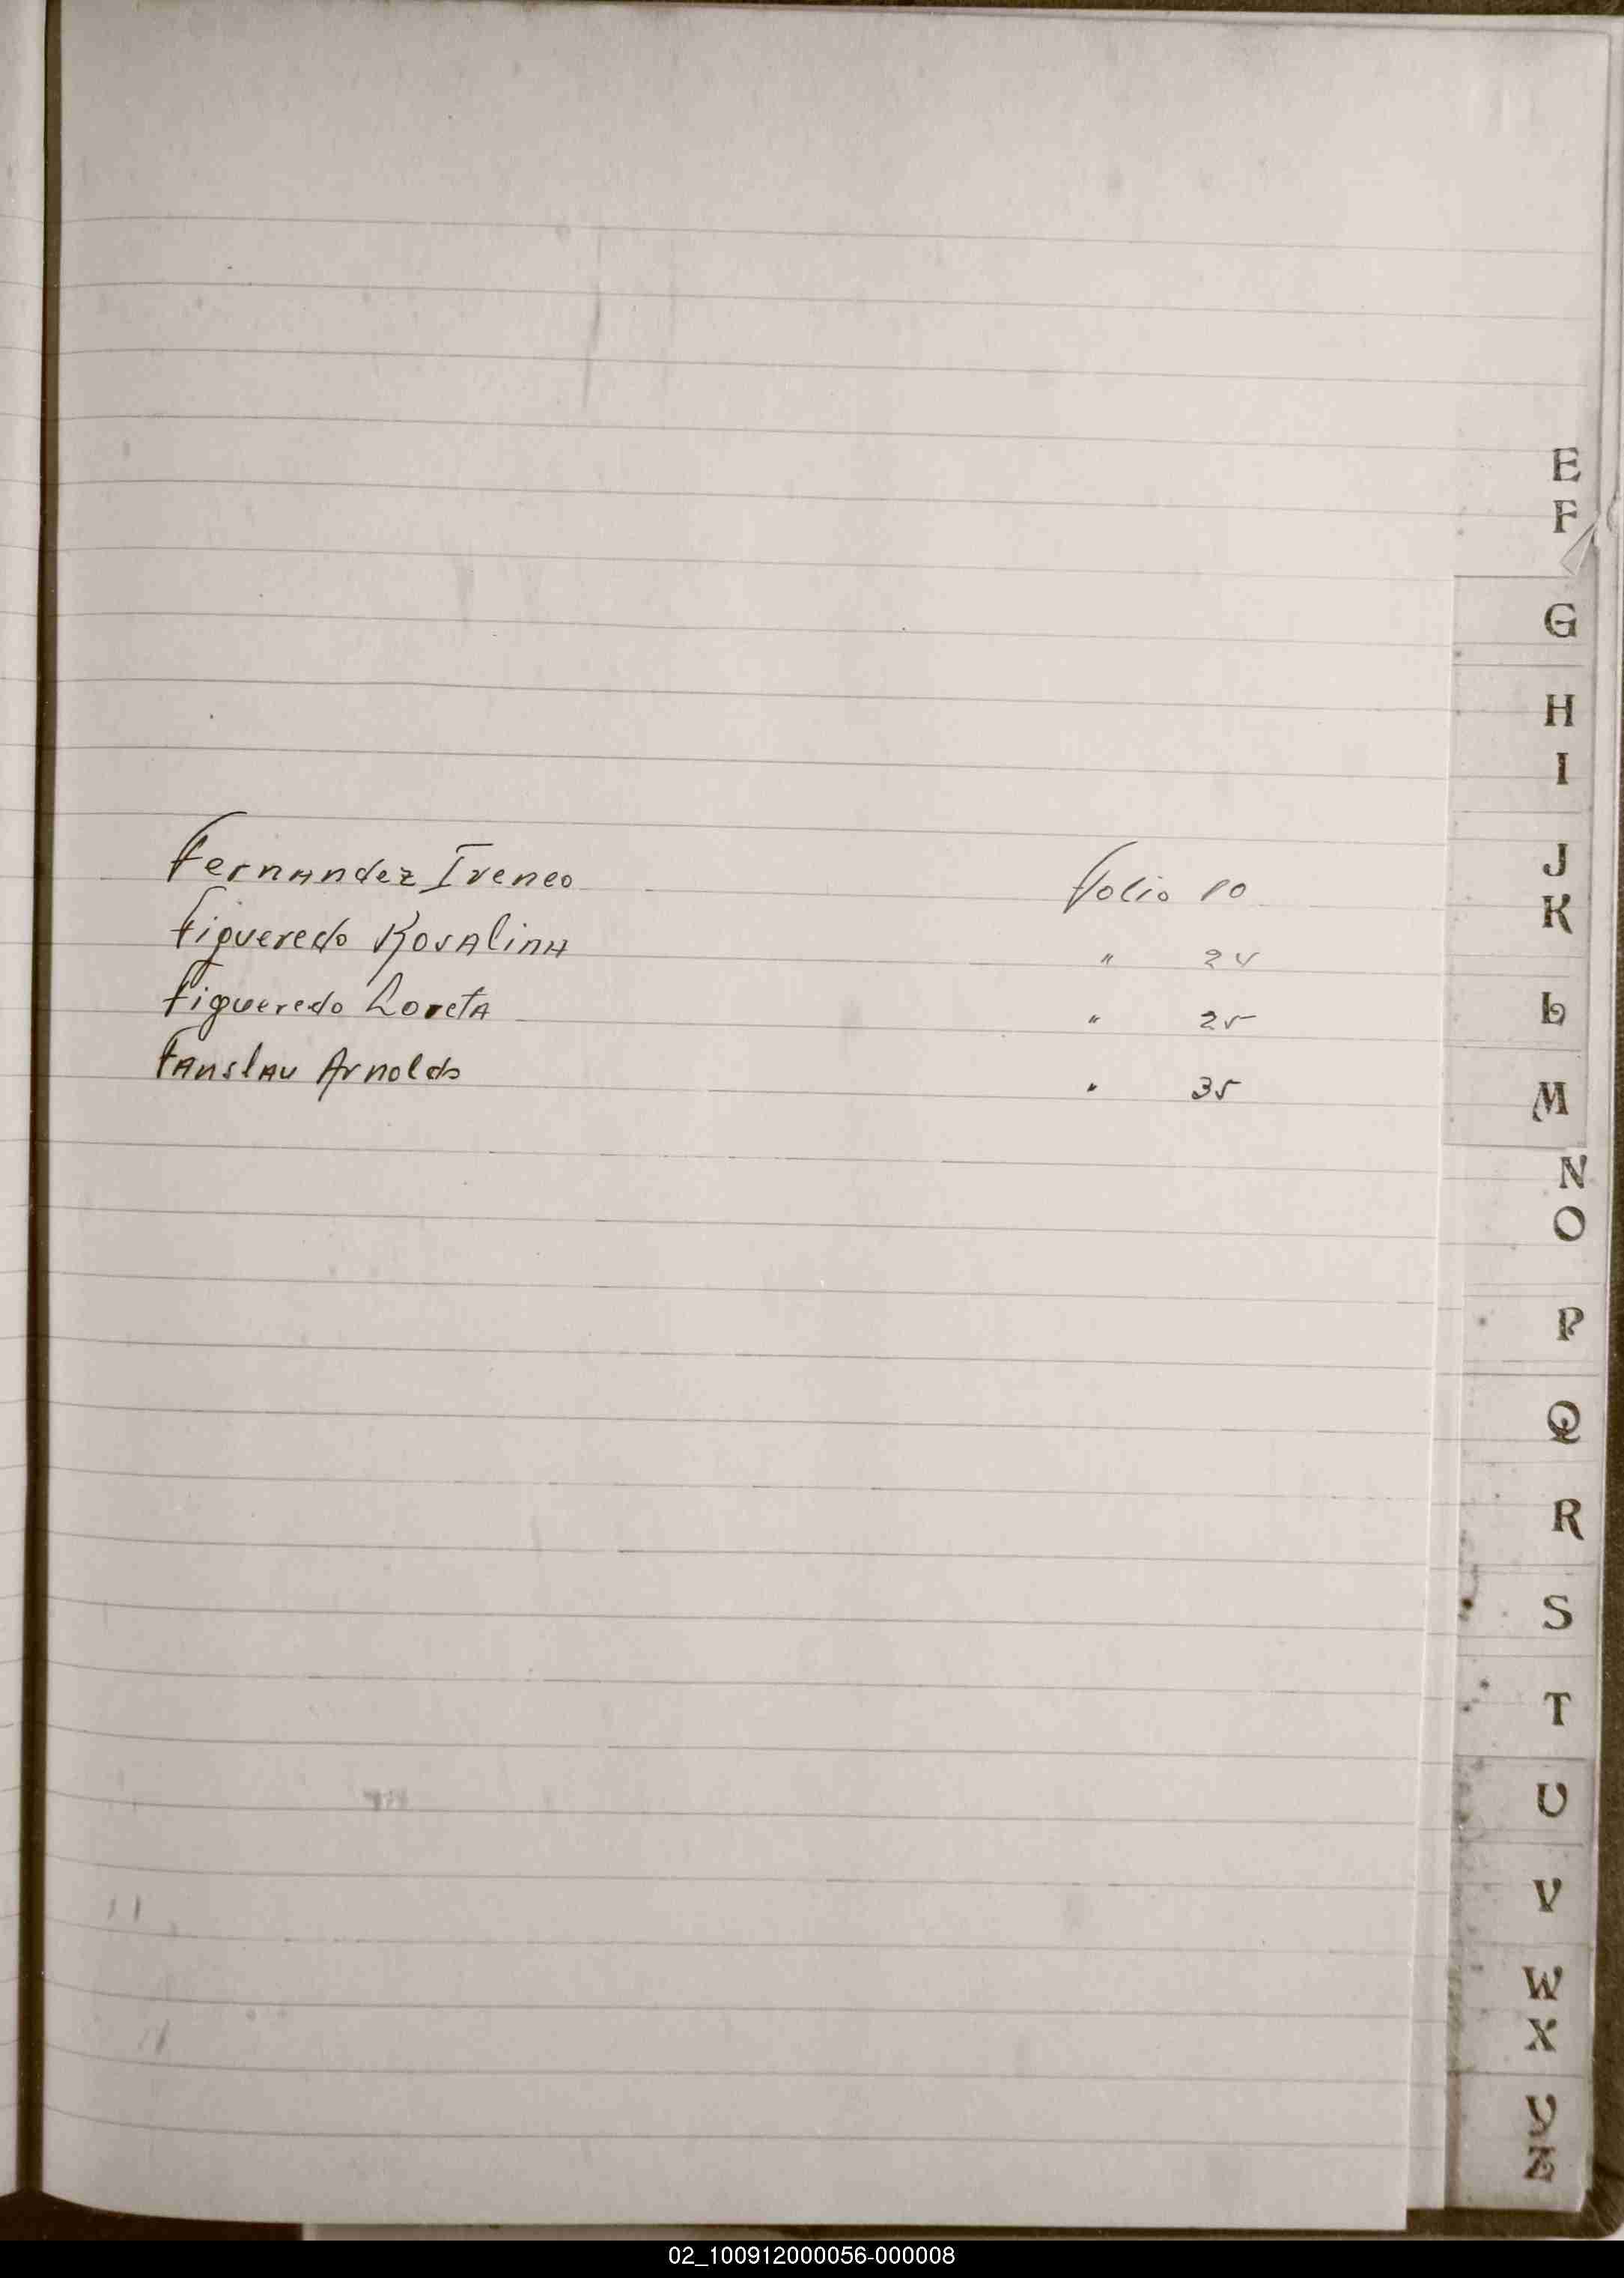 E
F
G
H
I
J
K
L
M
N
O
P
Q
R
S
T
U
V
W
X
Y
Z
Fernandez Ireneo folio 10
Figueredo Rosalina " 25
Figueredo Loreta " 25
Fanslau Arnoldo " 35
02_100912000056-000008